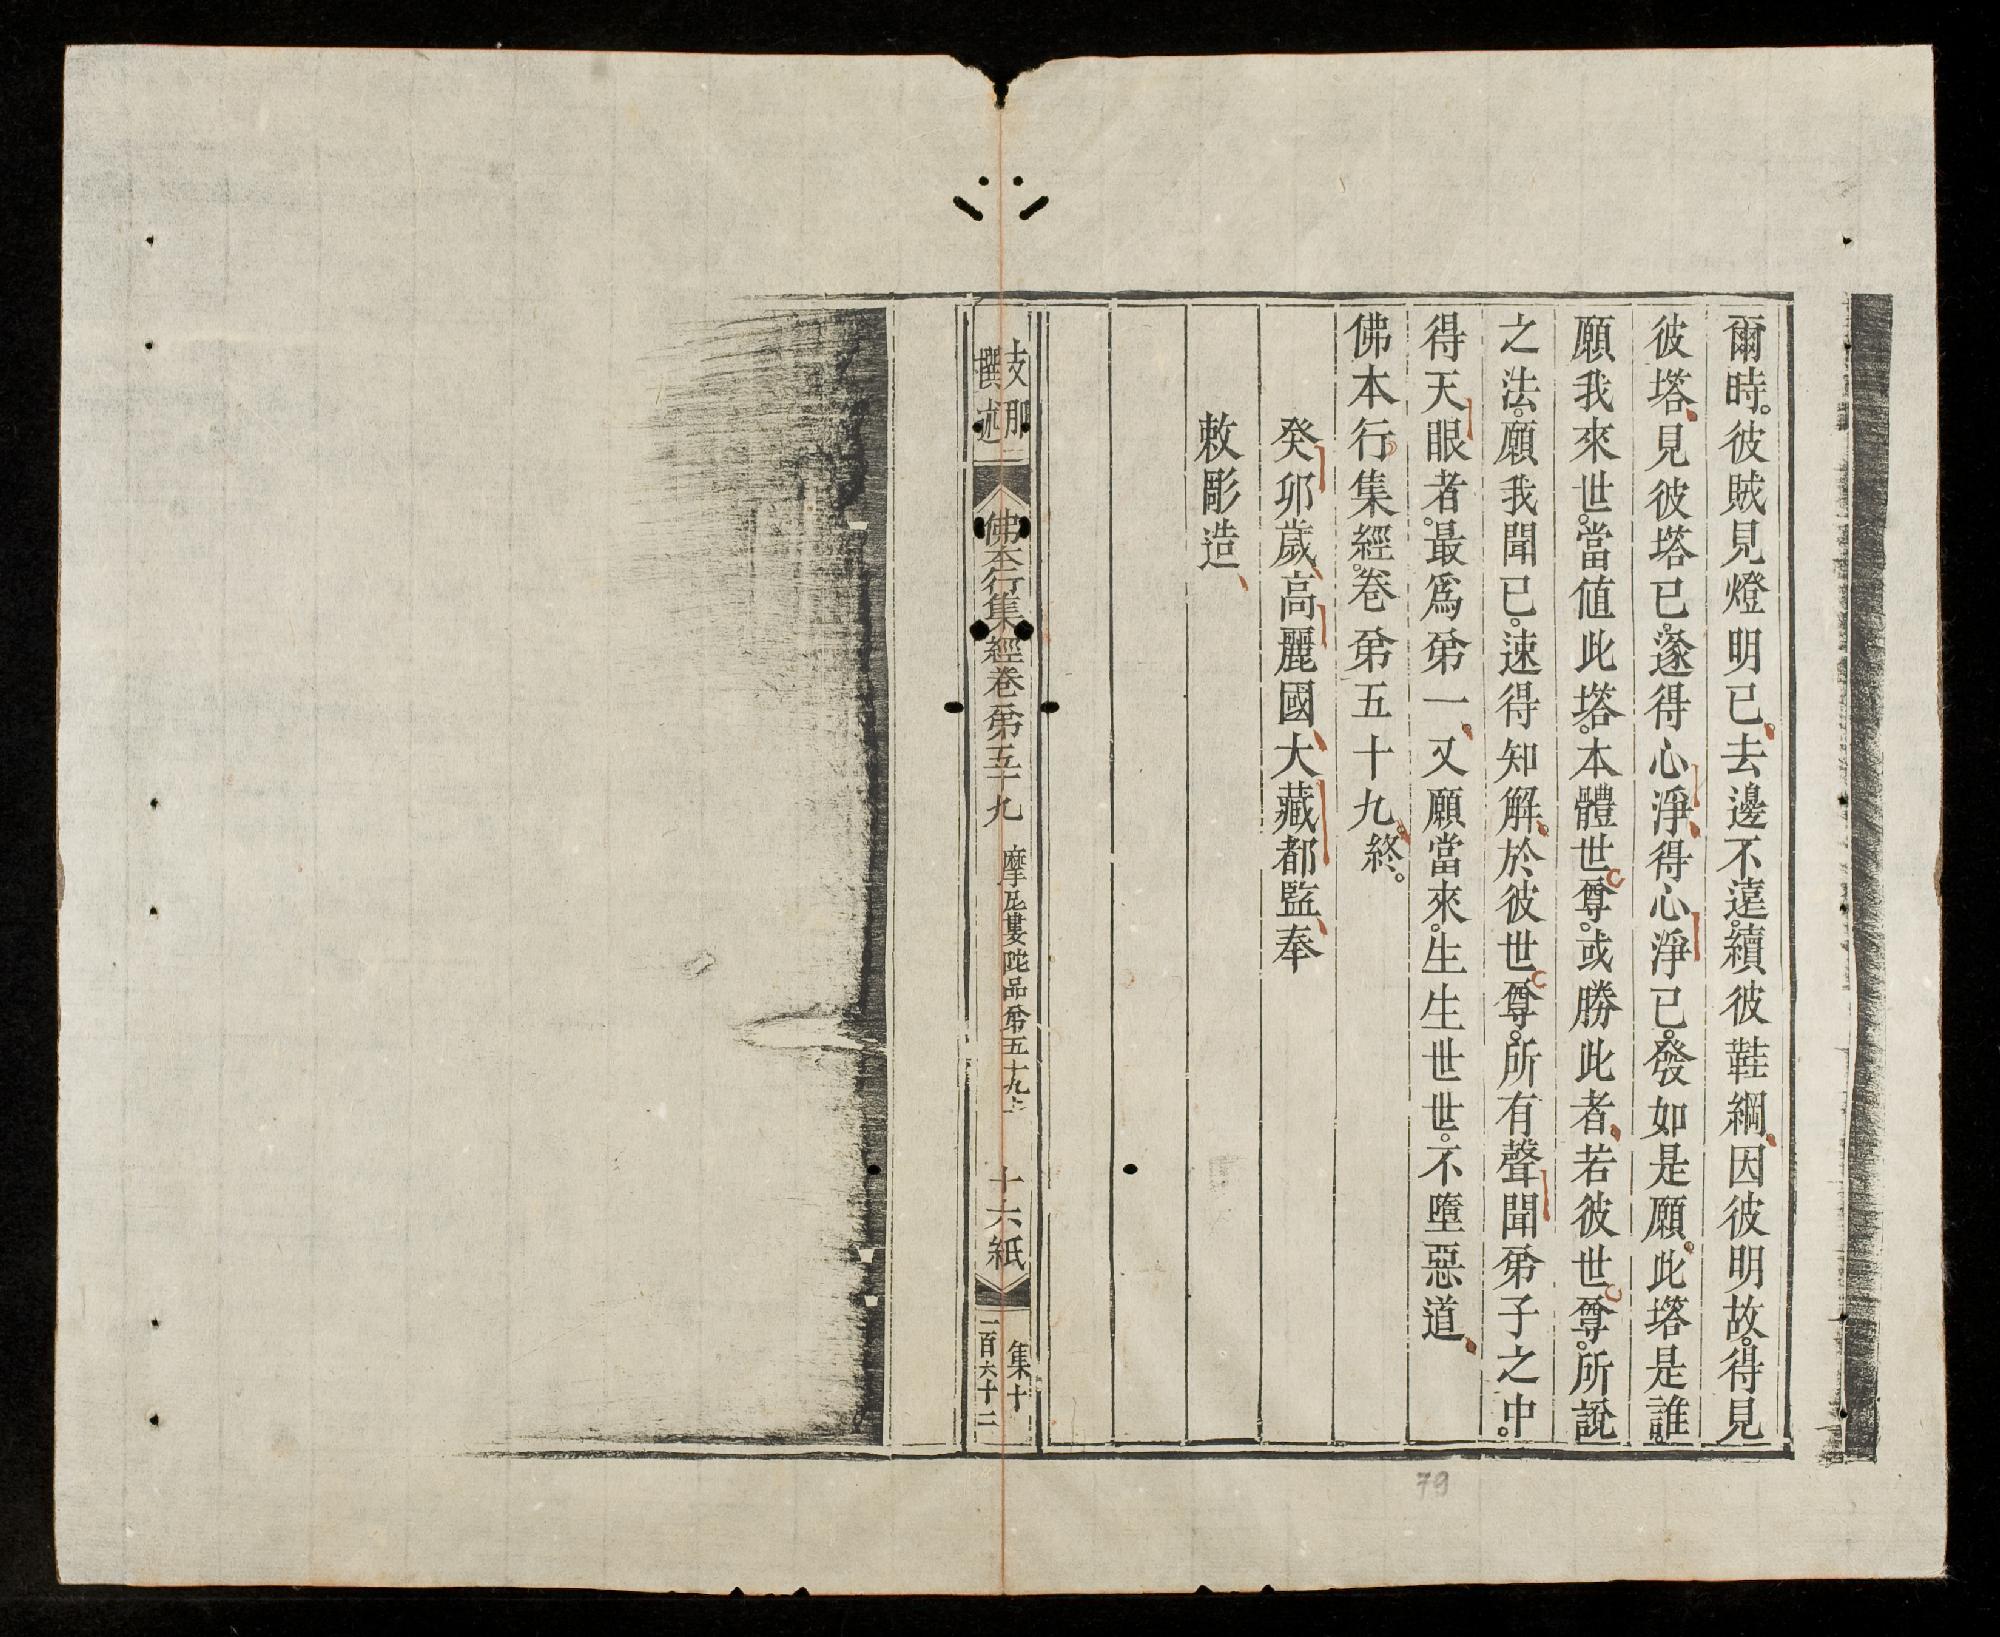 爾時。彼賊見燈明已。去邊不遠。續彼鞋綱。因彼明故。得見
彼塔。見彼塔已。遂得心淨。得心淨已。發如是願。此塔是誰。
願我來世。當値此塔。本體世尊。或勝此者。若彼世尊。所說
之法。願我聞已。速得知解。於彼世尊。所有聲聞弟子之中。
得天眼者。最爲第一。又願當來。生生世世。不墮惡道。
佛本行集經。卷第五十九。終。
癸卯歲、高麗國、大藏都監、奉
敕彫造、
支那
撰述
佛本行集經卷第五十九
摩尼婁陀品第五十九
十六紙
集十
一百六十三
79